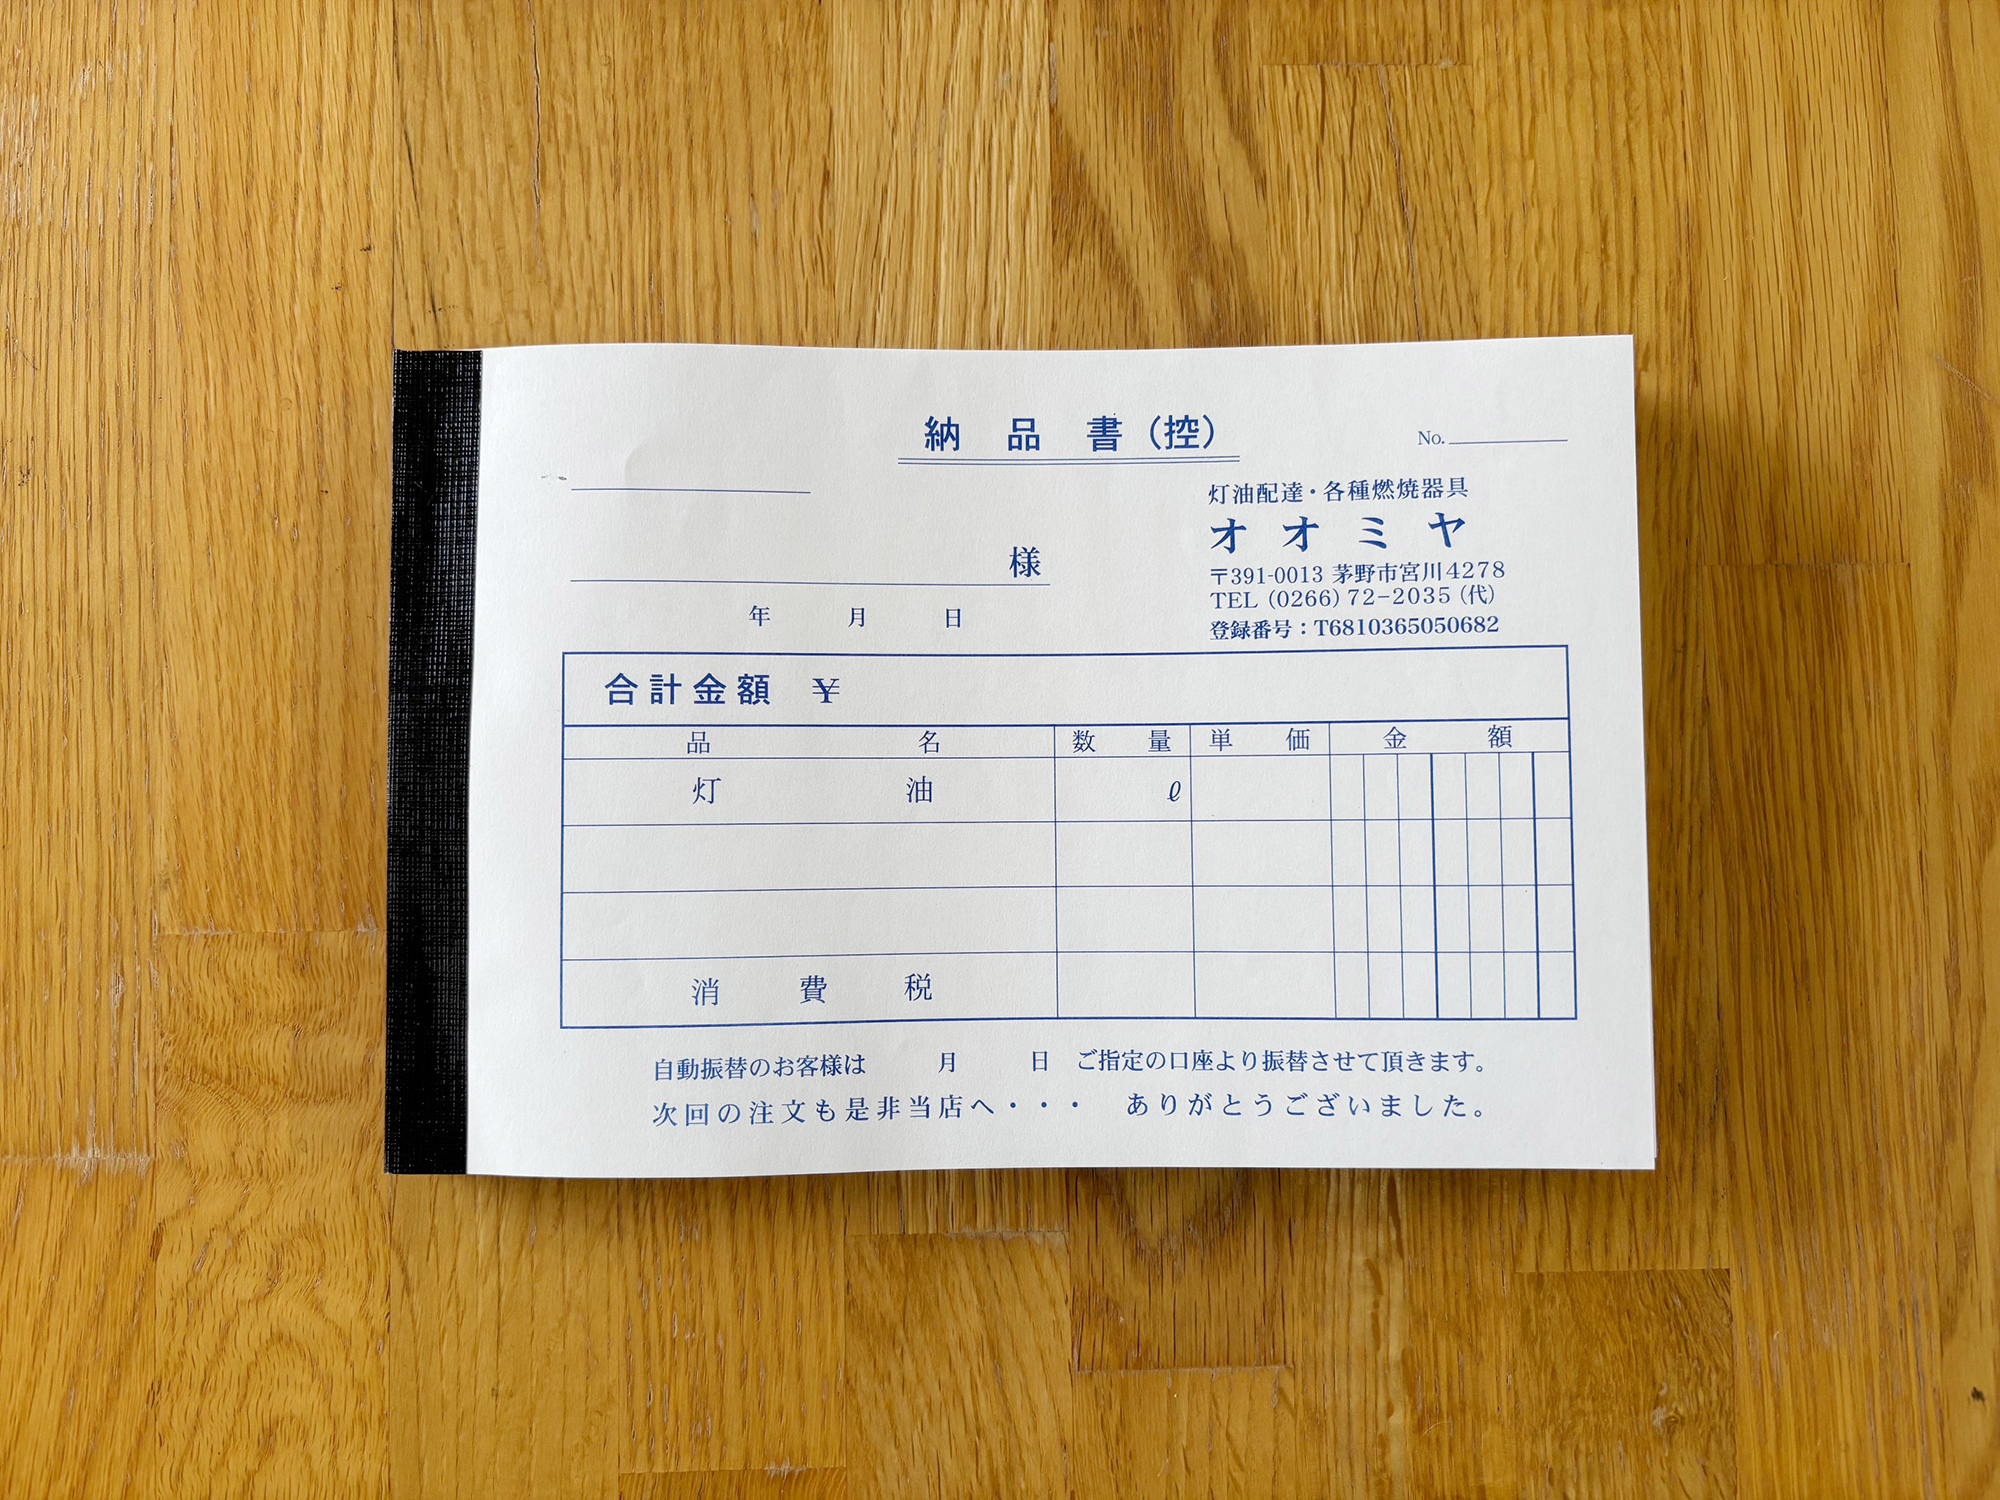 納品書（控）
No.
灯油配達・各種燃焼器具
オオミヤ
〒391-0013 茅野市宮川4278
TEL（0266）72−2035（代）
登録番号：T6810365050682
様
年 月 日
合計金額 ¥
品名 数量 単価 金額
灯油 ℓ
消費税
自動振替のお客様は 月 日 ご指定の口座より振替させて頂きます。
次回の注文も是非当店へ・・・ ありがとうございました。